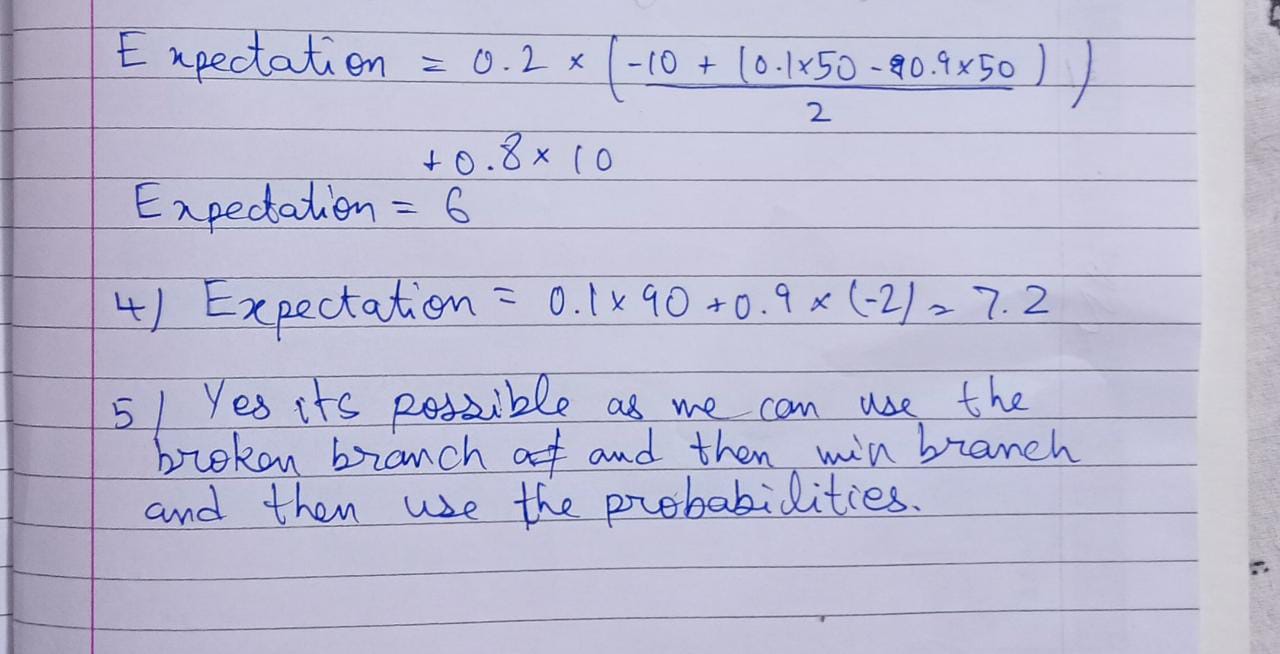 Expectation = 0.2 × (-10 + (0.1×50 - 0.9×50))
2
+0.8 × 10
Expectation = 6
4) Expectation = 0.1 × 90 + 0.9 × (-2) = 7.2
5) Yes its possible as we can use the
broken branch and then win branch
and then use the probabilities.